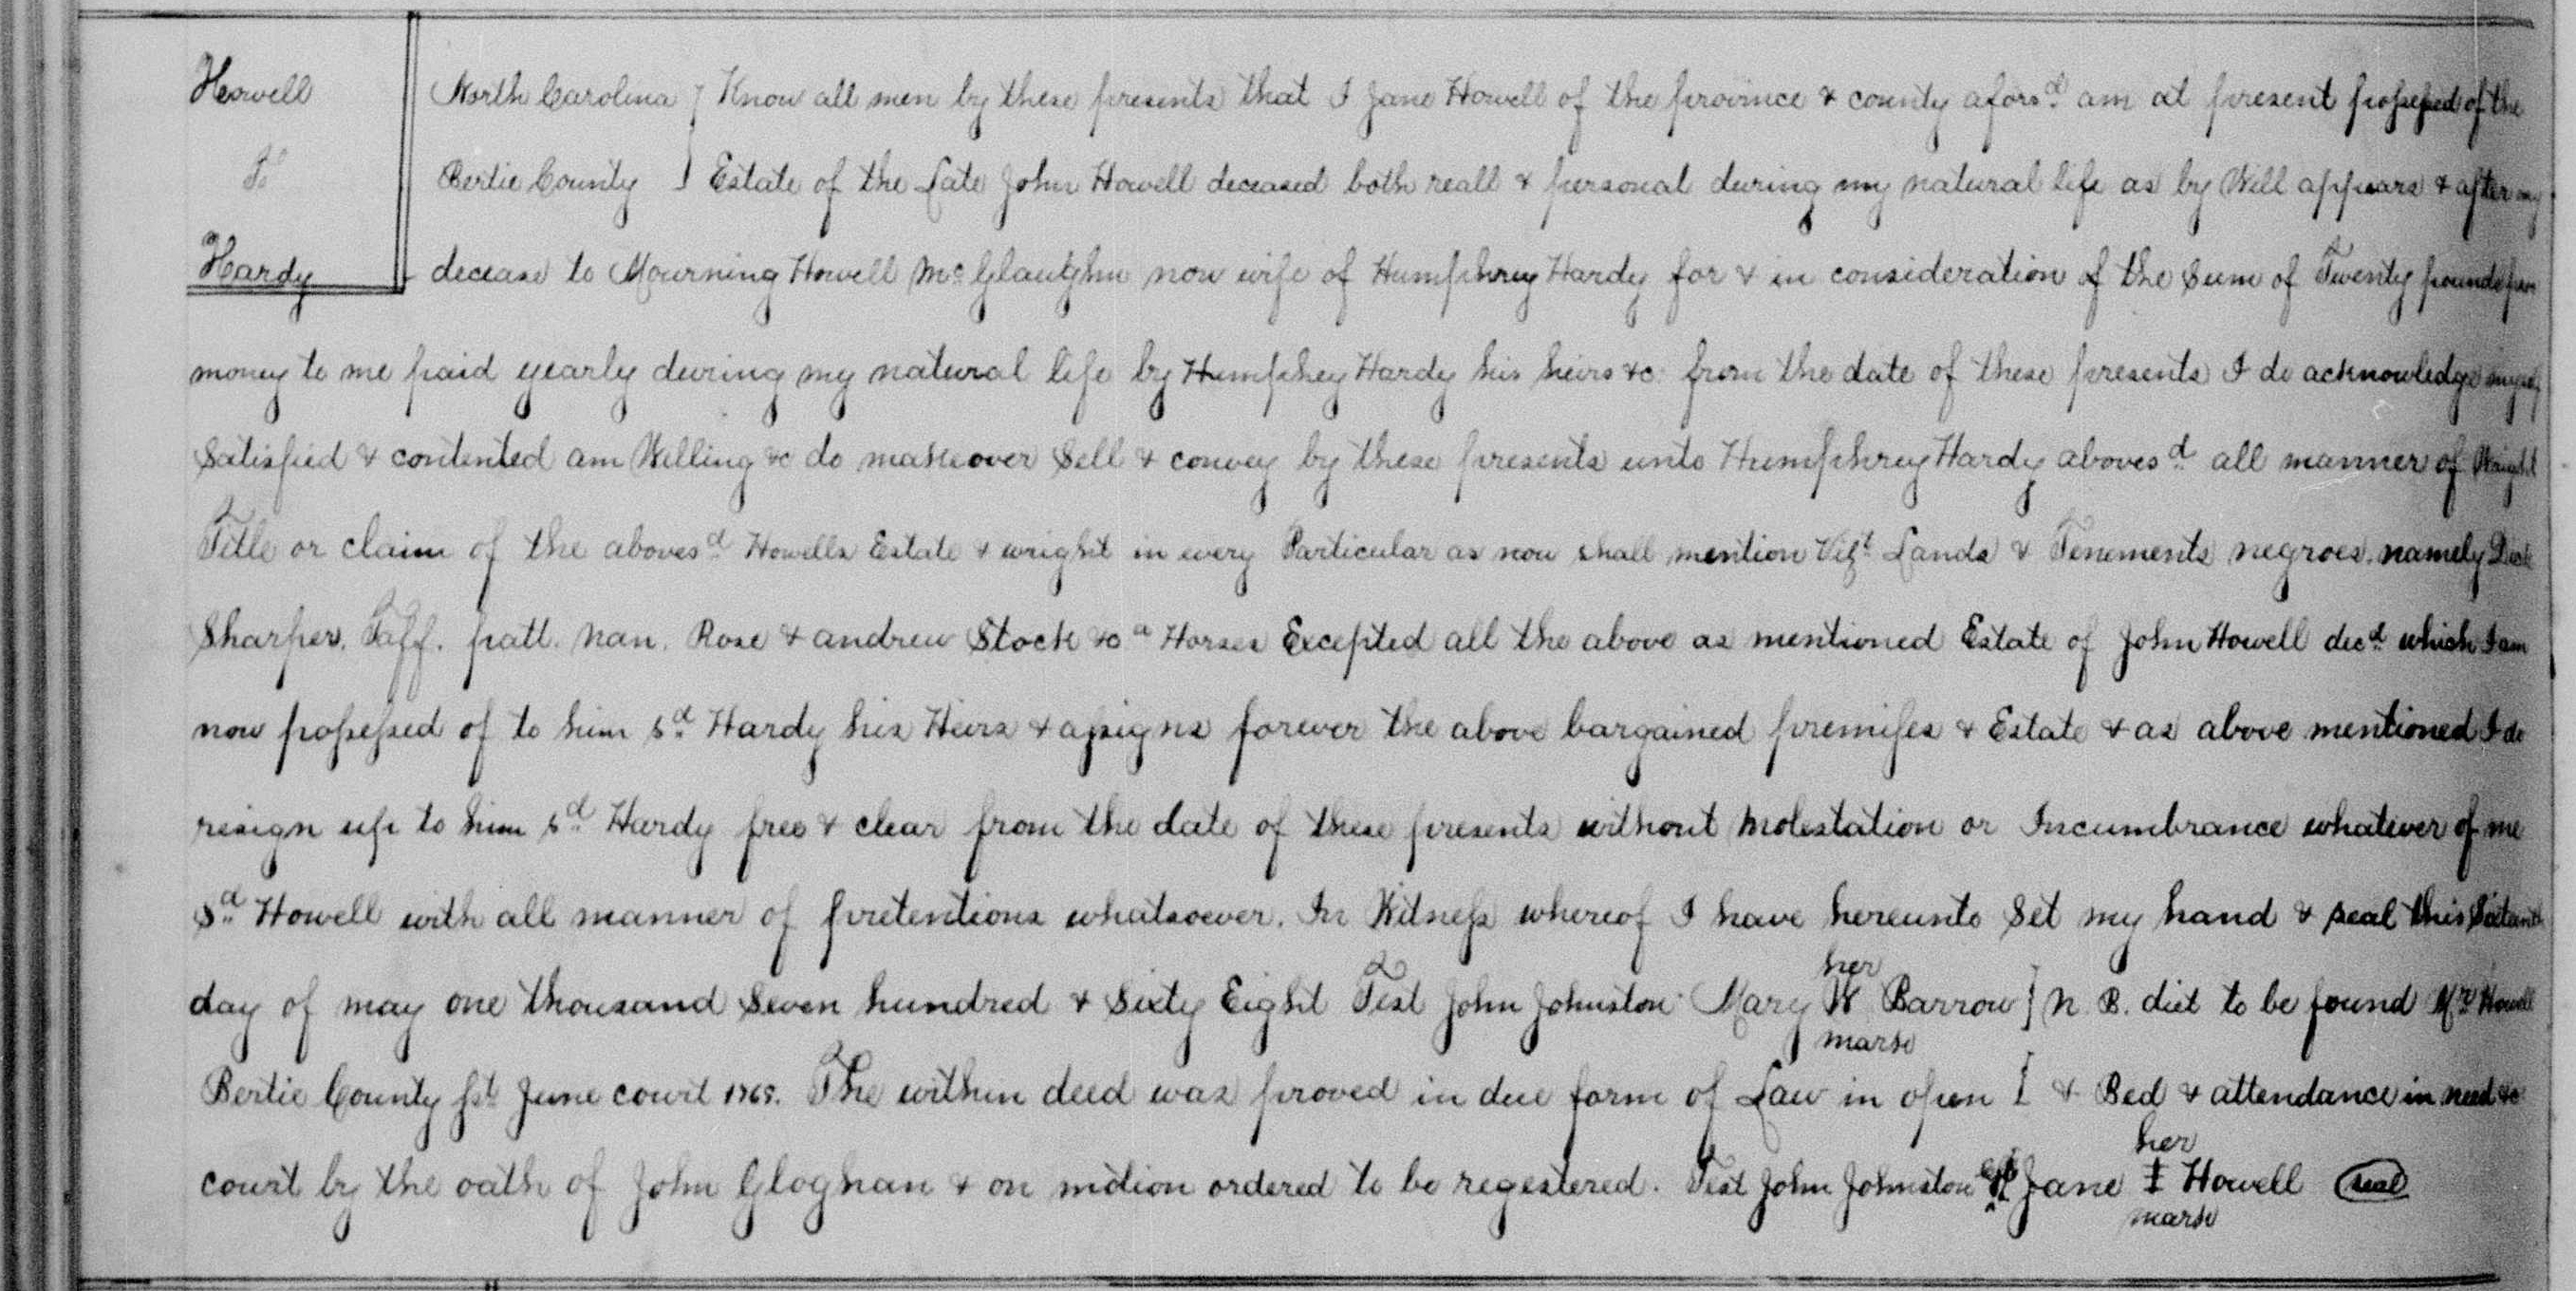 Howell
To
Hardy
North Carolina } Know all men by these presents that I Jane Howell of the province & county afors.d am at present possessed of the
Bertie County } Estate of the Late John Howell deceased both reall & personal during my natural life as by Will appears & after my
decease to Mourning Howell Mc Glaughn now wife of Humphrey Hardy for & in consideration of the Sum of Twenty pounds
money to me paid yearly during my natural life by Humphey Hardy his heirs &c from the date of these presents I do acknowledge myself
Satisfied & contented am Willing &c do make over Sell & convey by these presents unto Humphrey Hardy aboves.d all manner of Wright
Title or claim of the aboves.d Howells Estate & wright in every Particular as now shall mention Vizt Lands & Tenements negroes, namely
Sharper. Taff. patt. nan. Rose & andrew Stock &c a Horses Excepted all the above as mentioned Estate of John Howell decd which I am
now possessed of to him s.d Hardy his Heirs & assigns forever the above bargained premises & Estate & as above mentioned I do
resign up to him s.d Hardy free & clear from the date of these presents without molestation or Incumbrance whatever of me
S.d Howell with all manner of pretentions whatsoever. In Witness whereof I have hereunto Set my hand & seal this
her
day of may one thousand Seven hundred & Sixty Eight Test John Johnston Mary W Barrow } N. B. diet to be found Mrs Howell
mark
Bertie County Sst June court 1768. The within deed was proved in due form of Law in open } & Bed & attendance in need &c
her
court by the oath of John Gloghan & on motion ordered to be regestered. Test John Johnston Jane ‡ Howell seal
mark